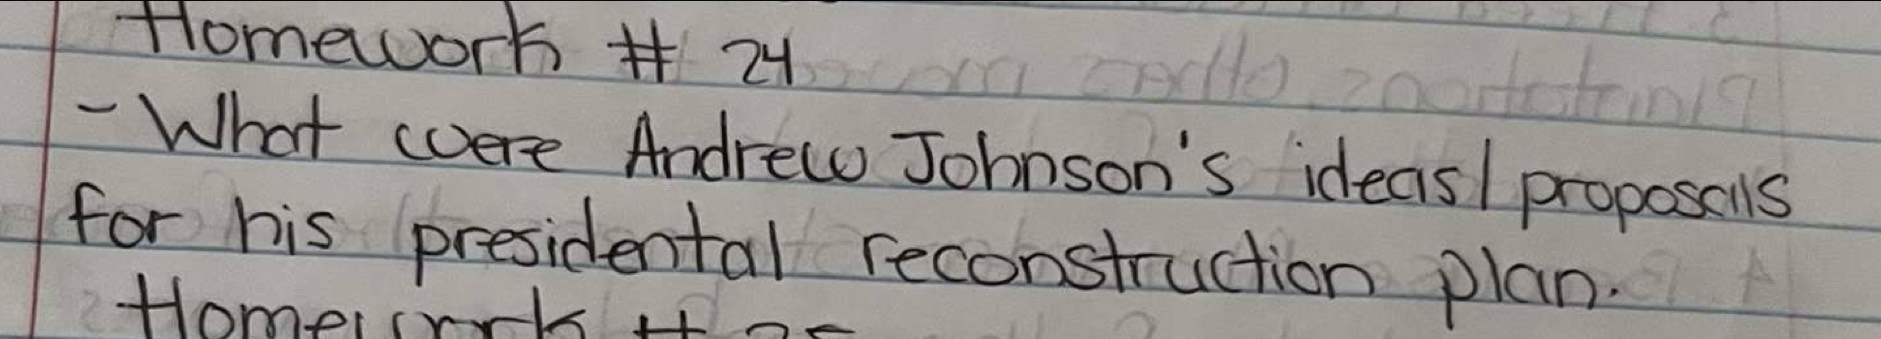 Homework # 24
- What were Andrew Johnson's ideas/proposals
for his presidental reconstruction plan.
Homework #